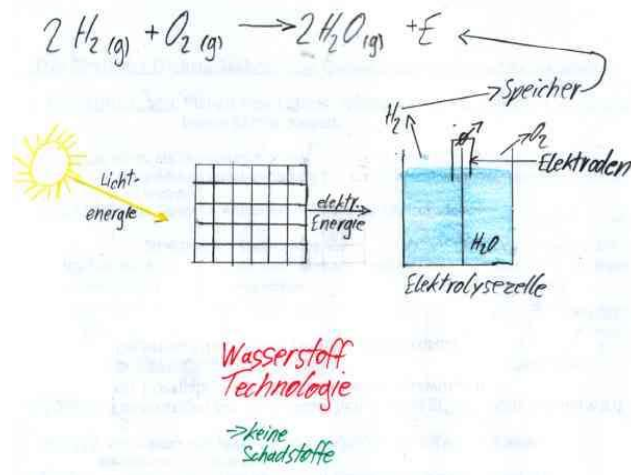 2 H₂(g) + O₂(g) → 2H₂O(g) + E
H₂ → Speicher
O₂
Elektroden
Licht-
energie
elektr.
Energie
H₂O
Elektrolysezelle
Wasserstoff
Technologie
→ keine
Schadstoffe